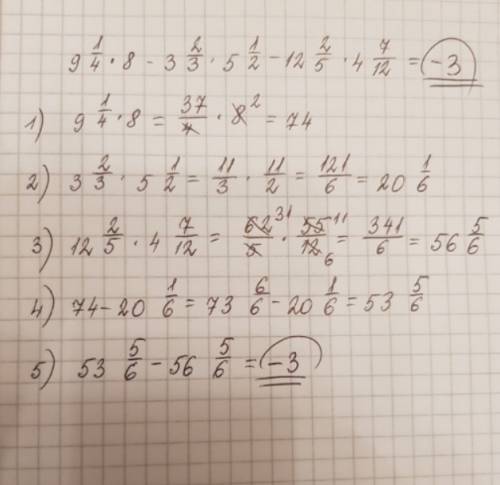 9 1/4 · 8 - 3 2/3 · 5 1/2 - 12 2/5 · 4 7/12 = -3
1) 9 1/4 · 8 = 37/4 · 8 2 = 74
2) 3 2/3 · 5 1/2 = 11/3 · 11/2 = 121/6 = 20 1/6
3) 12 2/5 · 4 7/12 = 62 31/5 · 55 11/12 6 = 341/6 = 56 5/6
4) 74 - 20 1/6 = 73 6/6 - 20 1/6 = 53 5/6
5) 53 5/6 - 56 5/6 = -3